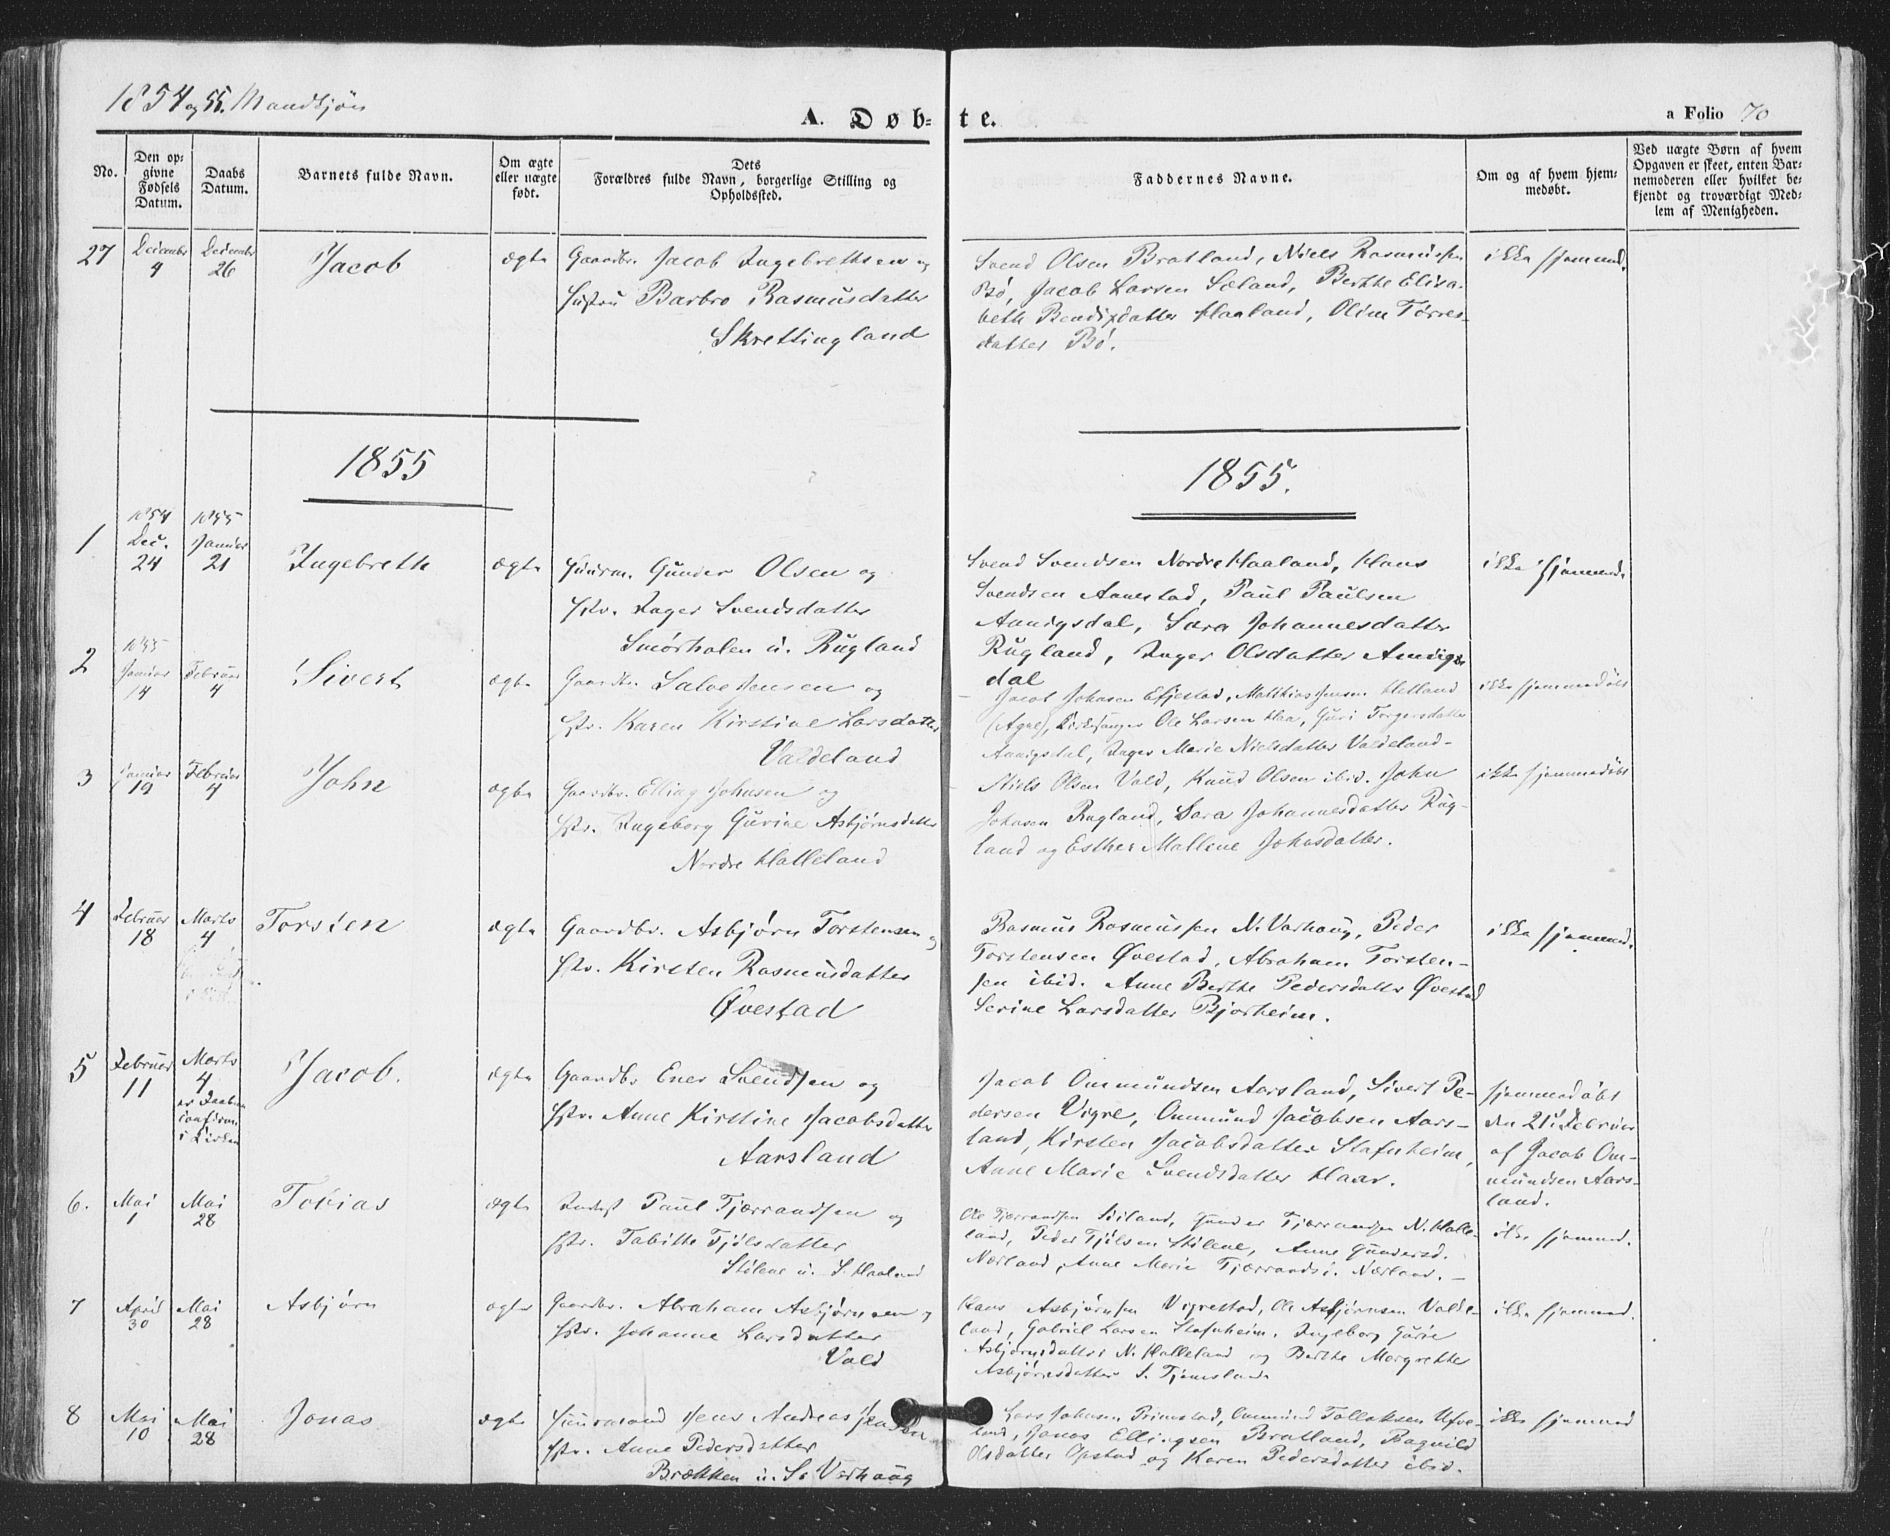 1854 og 55. Mandkjøn
A. Døb-te.
a Folio 70
No.
Den opgivne Fødsels Datum.
Daabs Datum.
Barnets fulde Navn.
Om ægte eller uægte født.
Dets Forældres fulde Navn, borgerlige Stilling og Opholdssted.
Faddernes Navne.
Om og af hvem hjemmedøbt.
Ved uægte Børn af hvem Opgaven er skeet, enten Barnemoderen eller hvilket bekjendt og troværdigt Medlem af Menigheden.
27 December 4 December 26 Jacob ægte
Gaardbr. Jacob Ingebrethsen og
Hustru Barbro Rasmusdatter
Skrettingland
Svend Olsen Bratland, Niels Rasmussen
Bø, Jacob Larsen Sæland, Berthe Elisa-
beth Bendixdatter Haaland, Oline Tørres-
datter Bø.
ikke hjemmed.
1855
1855.
1 1854 Dec. 24 1855 Januar 21 Ingebreth ægte
Huusm. Gunder Olsen og
Hstr. Inger Svendsdatter
Smørholen u. Rugland
Svend Svendsen Nordre Haaland, Hans
Svendsen Aanestad, Paul Paulsen
Aanigsdal, Sara Johannesdatter
Rugland, Inger Olsdatter Aanigs-
dal
ikke hjemmed.
2 1855 Januar 14 Februar 4 Sivert ægte
Gaardbr. Salve Jensen og
Hstr. Karen Kirstine Larsdatter
Valdeland
Jacob Johnsen Efjestad, Mathias Jensen Hetland
(Agre), Kirkesanger Ole Larsen Haa, Guri Torgersdatter
Aanigsdal, Inger Marie Nielsdatter Valdeland-
ikke hjemmedøbt
3 Januar 19 Februar 4 John ægte
Gaardbr. Elling Johnsen og
Hstr. Ingeborg Gurine Asbjørnsdatter
Nordre Halleland
Niels Olsen Vold, Knud Olsen ibid. John
Johnsen Rugland, Sara Johannesdatter Rug-
land og Esther Mallene Johnsdatter.
ikke hjemmedøbt
4 Februar 18 Marts 4 Torsten ægte
Gaardbr. Asbjørn Torstensen og
Hstr. Kirsten Rasmusdatter
Øvestad
Rasmus Rasmussen N. Varhoug, Peder
Torstensen Øvestad, Abraham Torsten-
sen ibid. Anne Berthe Pedersdatter Øvestad
Serine Larsdatter Bjorheim.
ikke hjemmed.
5 Februar 11 Marts 4 er Daaben confirm. i Kirken Jacob. ægte
Gaardbr. Ener Svendsen og
Hstr. Anne Kirstine Jacobsdatter
Aarsland
Jacob Ommundsen Aarsland, Sivert Pe-
dersen Vigre, Ommund Jacobsen Aars-
land, Kirsten Jacobsdatter Stafnheim,
Anne Marie Svendsdatter Haar.
hjemmedøbt
den 21. Februar
af Jacob Om-
mundsen Aars-
land.
6. Mai 1 Mai 28 Tobias ægte
Inderst Paul Tjærrandsen og
Hstr. Tabitte Tjølsdatter
Stølene u. S. Haaland
Ole Tjærrandsen Stiland, Gunder Tjærrandsen N. Halle-
land, Peder Tjølsen Stølene, Anne Gundersd.
Nærland, Anne Marie Tjærrandsd. Nærland. -
ikke hjemmed.
7 April 30 Mai 28 Asbjørn ægte
Gaardbr. Abraham Asbjørnsen og
Hstr. Johanne Larsdatter
Vold
Hans Asbjørnsen Vigrestad, Ole Asbjørnsen Valde-
land, Gabriel Larsen Stafnheim, Ingeborg Gurie
Asbjørnsdatter N. Halleland og Berthe Margrethe
Asbjørnsdatter S. Tjemsland.
ikke hjemmed.
8 Mai 10 Mai 28 Jonas ægte
Huusmand Jens Andreas Jensen
Hstr. Anne Pedersdatter
Brækken u. S. Varhoug
Lars Johnsen Primstad, Ommund Tollaksen Ufve-
land, Jonas Ellingsen Bratland, Ragnild
Olsdatter Opstad og Karen Pedersdatter ibid.
ikke hjemmed